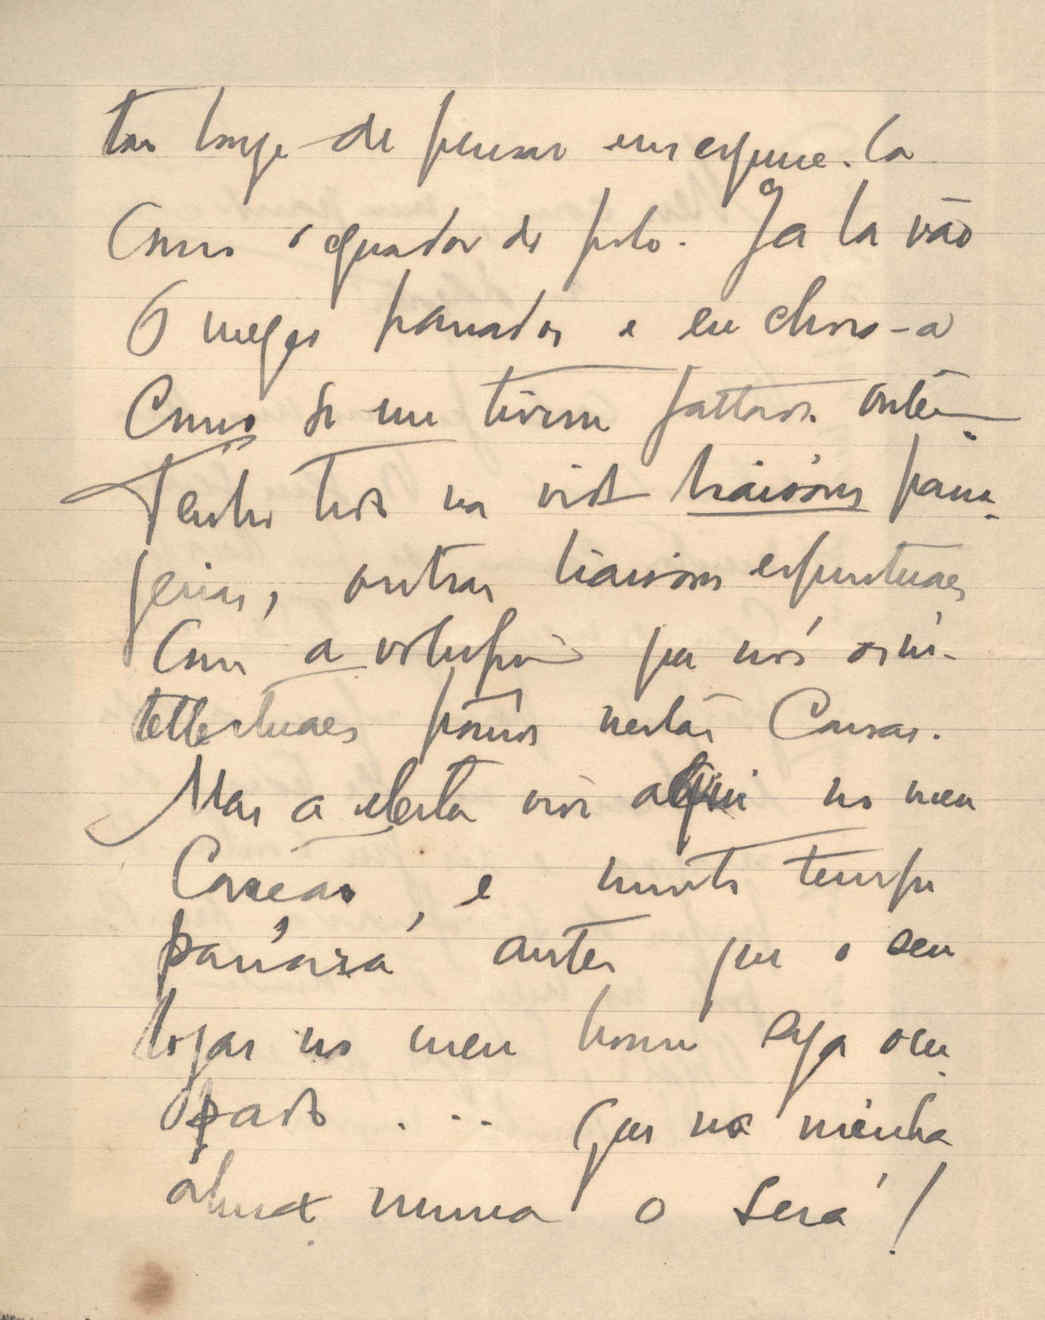 tão longe de pensar em esquece-la
Como o equador do polo. Ja la vão
6 mezes passados e eu choro-a
Como se me tivesse faltado ontem.
Tenho tido na vida liaisons passa-
geiras, outras liaisons espirituaes
Com a volupia que nós os in-
tellectuaes pômos nestas Cousas.
Mas a esta vive aqui no meu
Coração, e muito tempo
passará antes que o seu
logar no meu home seja ocu-
pado ... Que na minha
alma nunca o será!